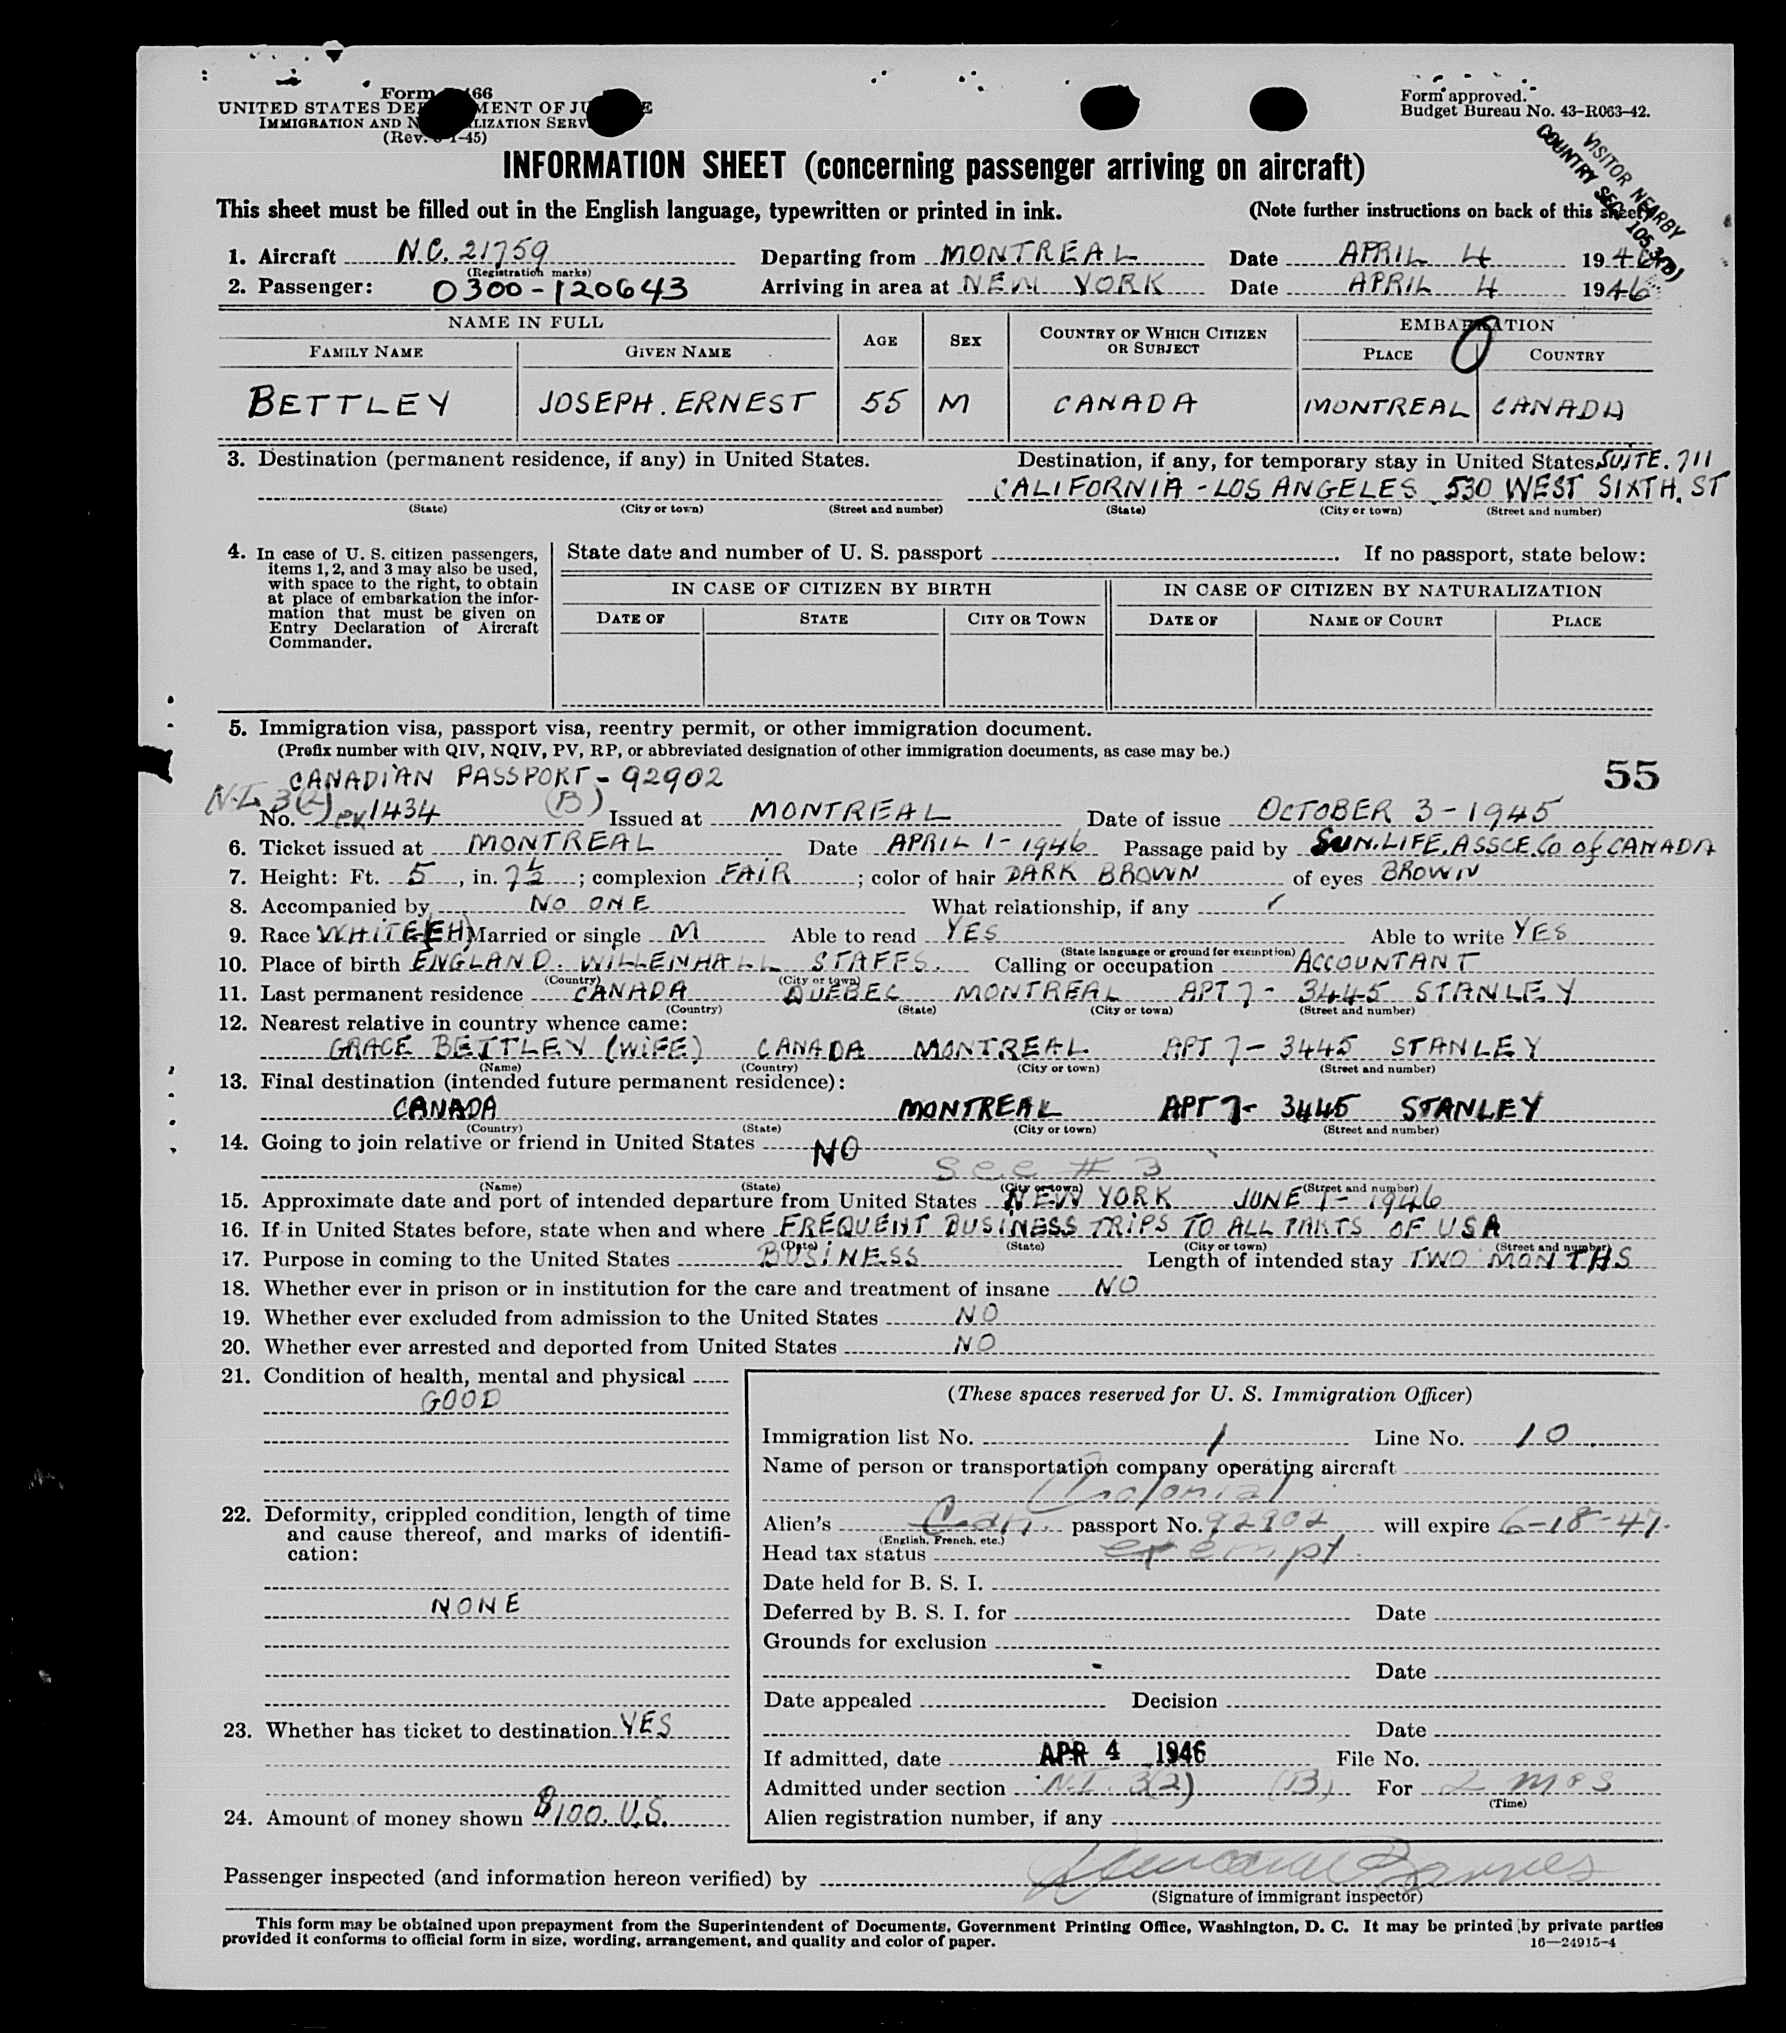 Form 466
UNITED STATES DEPARTMENT OF JUSTICE
IMMIGRATION AND NATURALIZATION SERVICE
(Rev. -1-45)
Form approved.
Budget Bureau No. 43-R063-42.
VISITOR NEARBY
COUNTRY SEC. 105.3(B)
INFORMATION SHEET (concerning passenger arriving on aircraft)
This sheet must be filled out in the English language, typewritten or printed in ink. (Note further instructions on back of this sheet)
1. Aircraft N.C. 21759 Departing from MONTREAL Date APRIL 4 1946
(Registration marks)
2. Passenger: 0300-120643 Arriving in area at NEW YORK Date APRIL 4 1946
NAME IN FULL AGE SEX COUNTRY OF WHICH CITIZEN OR SUBJECT EMBARKATION
FAMILY NAME GIVEN NAME PLACE COUNTRY
BETTLEY JOSEPH. ERNEST 55 M CANADA MONTREAL CANADA
3. Destination (permanent residence, if any) in United States. Destination, if any, for temporary stay in United States SUITE. 711
CALIFORNIA - LOS ANGELES 530 WEST SIXTH. ST
(State) (City or town) (Street and number) (State) (City or town) (Street and number)
4. In case of U. S. citizen passengers, items 1, 2, and 3 may also be used, with space to the right, to obtain at place of embarkation the information that must be given on Entry Declaration of Aircraft Commander.
State date and number of U. S. passport If no passport, state below:
IN CASE OF CITIZEN BY BIRTH IN CASE OF CITIZEN BY NATURALIZATION
DATE OF STATE CITY OR TOWN DATE OF NAME OF COURT PLACE
5. Immigration visa, passport visa, reentry permit, or other immigration document.
(Prefix number with QIV, NQIV, PV, RP, or abbreviated designation of other immigration documents, as case may be.)
CANADIAN PASSPORT - 92902 55
N.I. 3(2) (B)
No. 1434 Issued at MONTREAL Date of issue OCTOBER 3 - 1945
6. Ticket issued at MONTREAL Date APRIL 1 - 1946 Passage paid by SUN. LIFE. ASSCE. Co of CANADA
7. Height: Ft. 5, in. 7½; complexion FAIR; color of hair DARK BROWN of eyes BROWN
8. Accompanied by NO ONE What relationship, if any ✓
9. Race WHITE (EH) Married or single M Able to read YES Able to write YES
(State language or ground for exemption)
10. Place of birth ENGLAND. WILLENHALL STAFFS. Calling or occupation ACCOUNTANT
(Country) (City or town)
11. Last permanent residence CANADA QUEBEC MONTREAL APT 7 - 3445 STANLEY
(Country) (State) (City or town) (Street and number)
12. Nearest relative in country whence came:
GRACE BETTLEY (WIFE) CANADA MONTREAL APT 7 - 3445 STANLEY
(Name) (Country) (City or town) (Street and number)
13. Final destination (intended future permanent residence):
CANADA MONTREAL APT 7 - 3445 STANLEY
(Country) (State) (City or town) (Street and number)
14. Going to join relative or friend in United States NO
See # 3
(Name) (State) (City or town) (Street and number)
15. Approximate date and port of intended departure from United States NEW YORK JUNE 1 - 1946
16. If in United States before, state when and where FREQUENT BUSINESS TRIPS TO ALL PARTS OF USA
(Date) (State) (City or town) (Street and number)
17. Purpose in coming to the United States BUSINESS Length of intended stay TWO MONTHS
18. Whether ever in prison or in institution for the care and treatment of insane NO
19. Whether ever excluded from admission to the United States NO
20. Whether ever arrested and deported from United States NO
21. Condition of health, mental and physical
GOOD
22. Deformity, crippled condition, length of time and cause thereof, and marks of identification:
NONE
23. Whether has ticket to destination YES
24. Amount of money shown $100. U.S.
(These spaces reserved for U. S. Immigration Officer)
Immigration list No. 1 Line No. 10
Name of person or transportation company operating aircraft
Colonial
Alien's Can. passport No. 92902 will expire 6-18-47
(English, French, etc.)
Head tax status exempt
Date held for B. S. I.
Deferred by B. S. I. for Date
Grounds for exclusion
Date
Date appealed Decision
Date
If admitted, date APR 4 1946 File No.
Admitted under section N.I. 3(2) (B) For 2 mos
(Time)
Alien registration number, if any
Passenger inspected (and information hereon verified) by
(Signature of immigrant inspector)
This form may be obtained upon prepayment from the Superintendent of Documents, Government Printing Office, Washington, D. C. It may be printed by private parties
provided it conforms to official form in size, wording, arrangement, and quality and color of paper.
16—24915-4